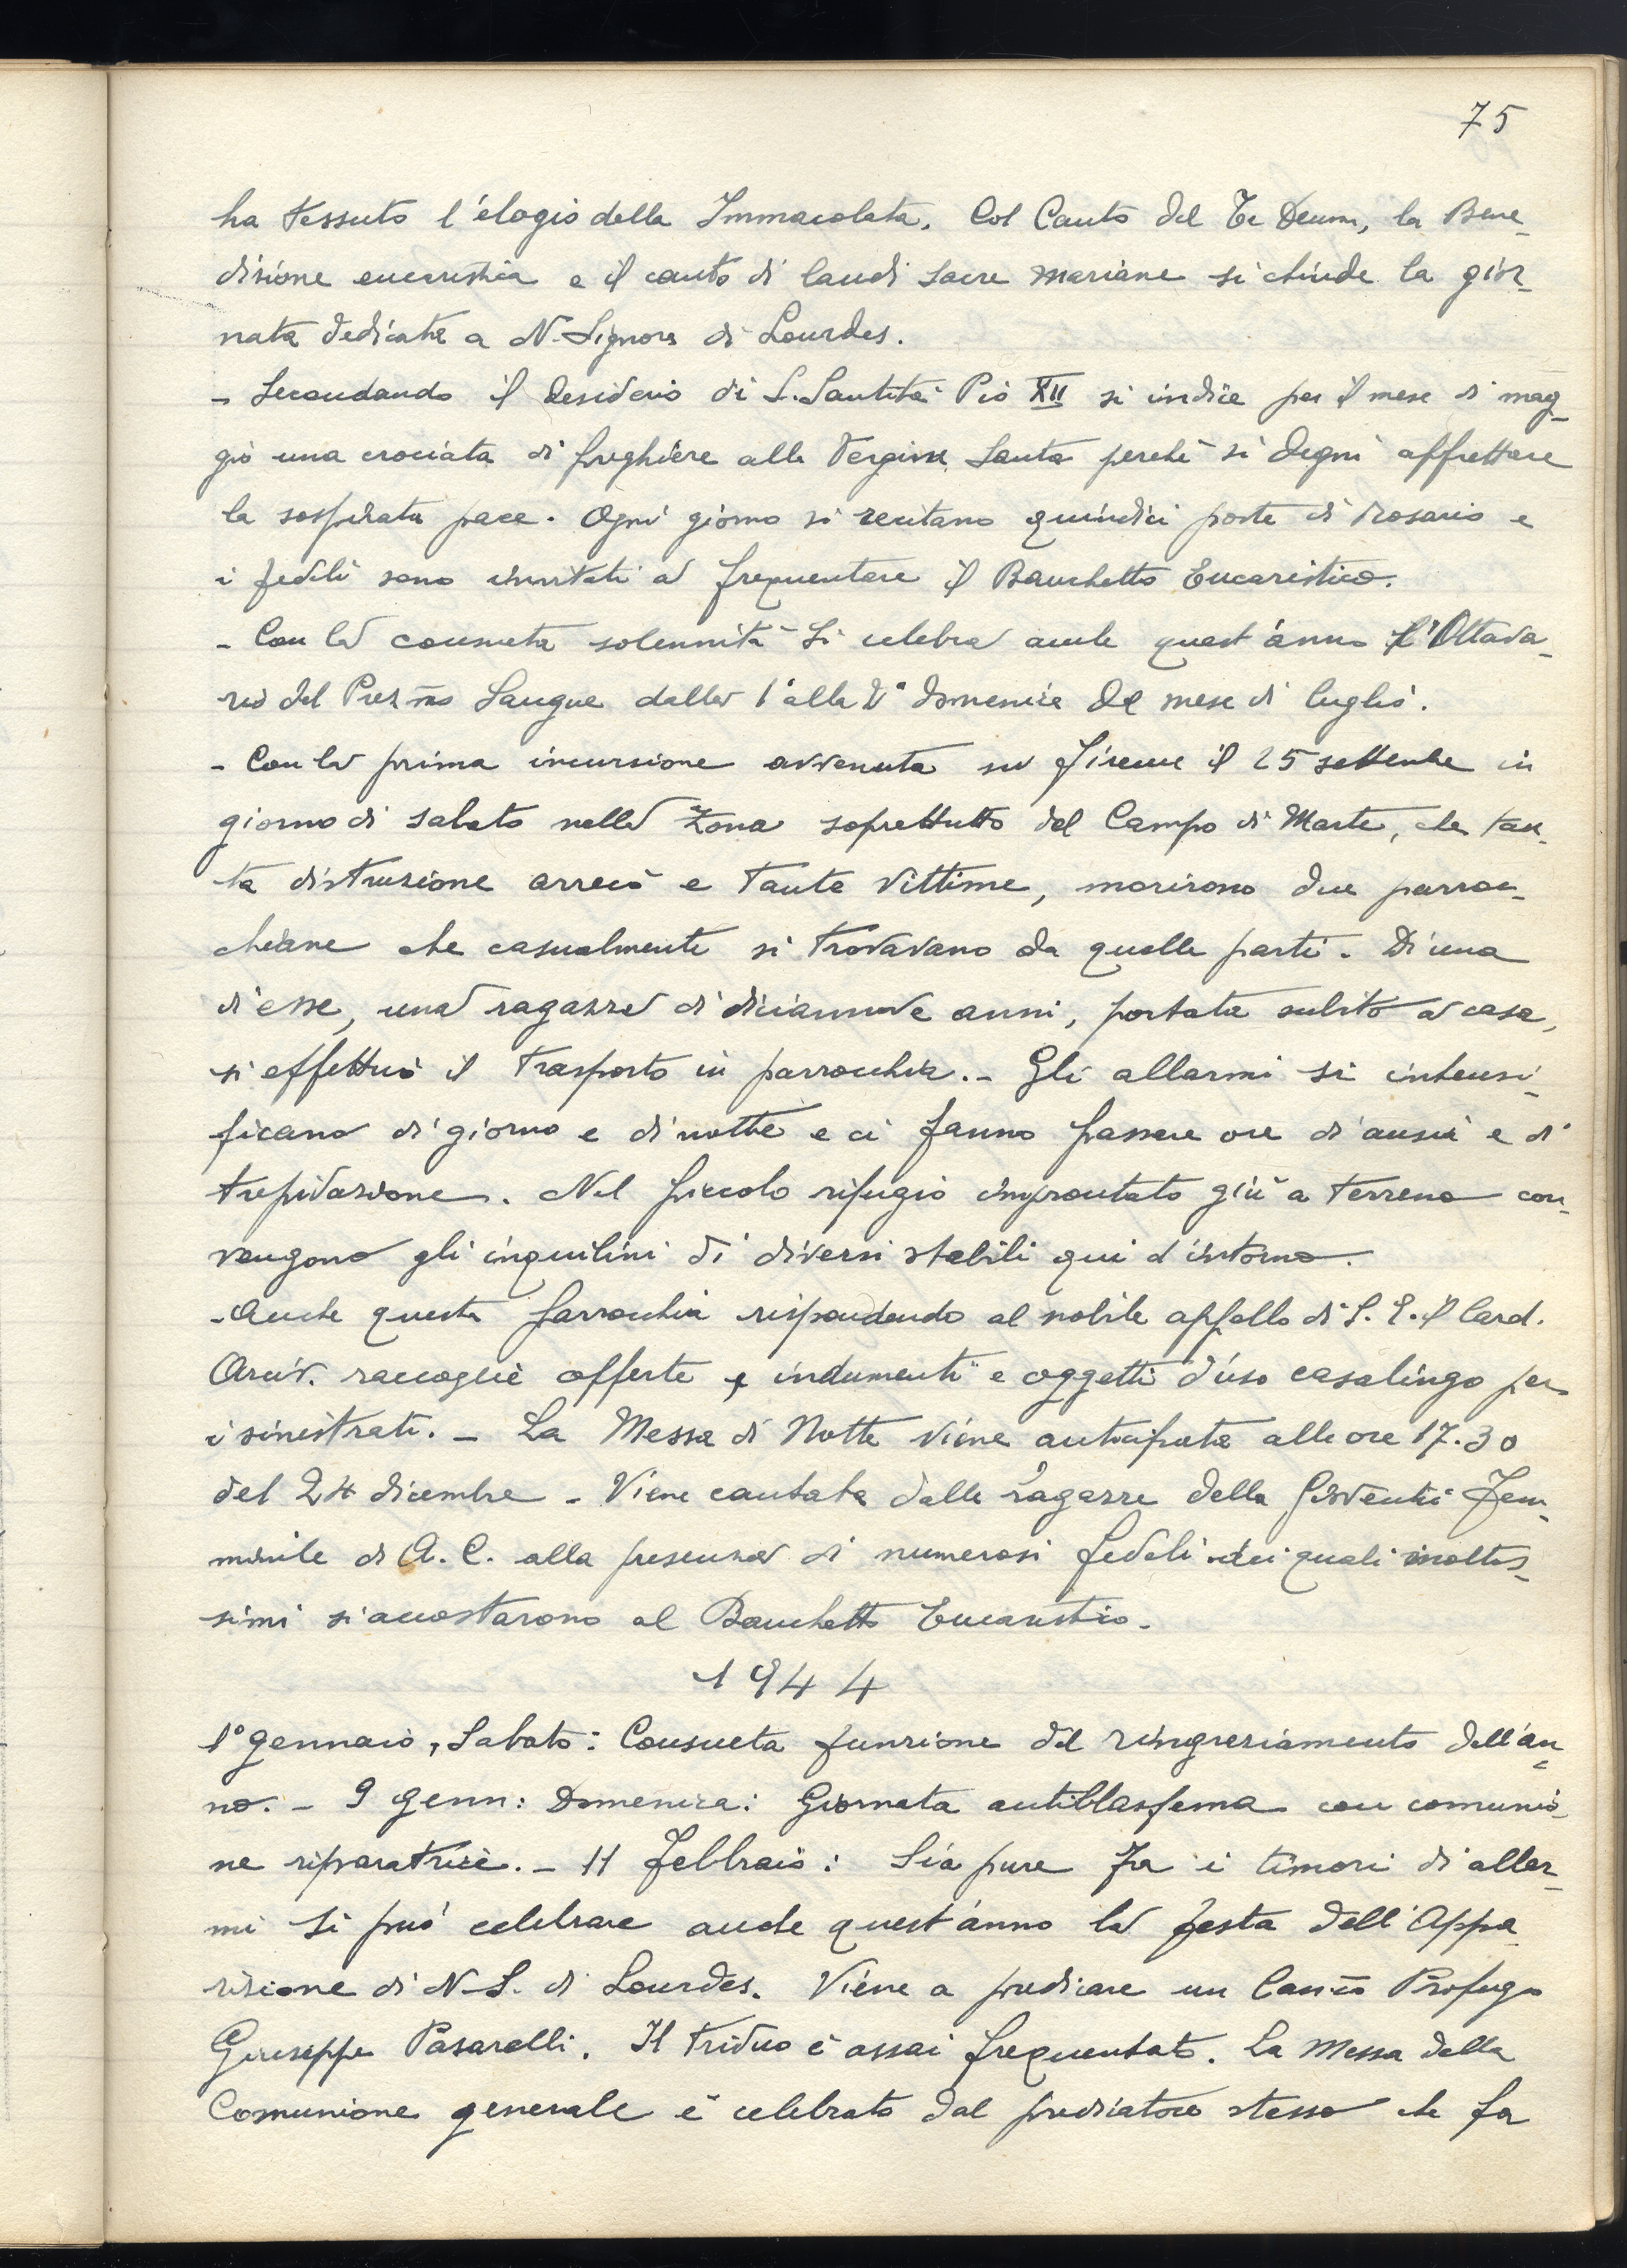 75
ha tessuto l'elogio della Immacolata. Col Canto del Te Deum, la Bene-
dizione eucaristica e il canto di laudi sacre mariane si chiude la gior-
nata dedicata a N. Signora di Lourdes.
- Secondando il desiderio di S. Santità Pio XII si indice per il mese di mag-
gio una crociata di preghiere alla Vergine Santa perchè si degni affrettare
la sospirata pace. Ogni giorno si recitano quindici poste di Rosario e
i fedeli sono invitati a frequentare il Banchetto Eucaristico.
- Con la consueta solennità si celebra anche quest'anno l'Ottava-
rio del Prez.mo Sangue dalla 1ª alla 2ª domenica del mese di luglio.
- Con la prima incursione avvenuta su Firenze il 25 settembre in
giorno di sabato nella zona soprattutto del Campo di Marte, che tan-
ta distruzione arrecò e tante vittime, morirono due parroc-
chiane che casualmente si trovavano da quelle parti. Di una
di esse, una ragazza di diciannove anni, portata subito a casa,
si effettuò il trasporto in parrocchia. - Gli allarmi si intensi-
ficano di giorno e di notte e ci fanno passare ore di ansia e di
trepidazione. Nel piccolo rifugio improntato giù a terreno con-
vengono gli inquilini di diversi stabili qui d'intorno.
- Anche questa parrocchia rispondendo al nobile appello di S. E. il Card.
Arciv. raccoglie offerte e indumenti e oggetti d'uso casalingo per
i sinistrati. - La Messa di Notte viene anticipata alle ore 17.30
del 24 dicembre - Viene cantata dalle ragazze della Gioventù Fem-
minile di A. C. alla presenza di numerosi fedeli dei quali moltis-
simi si accostarono al Banchetto Eucaristico.
1944
1° gennaio, Sabato: Consueta funzione del ringraziamento dell'an-
no. - 9 genn: Domenica: Giornata antiblasfema con comunio-
ne riparatrice. - 11 Febbraio: Sia pure fra i timori di allar-
mi si può celebrare anche quest'anno la festa dell'Appa-
rizione di N. S. di Lourdes. Viene a predicare un Can.co Profugo
Giuseppe Pasarelli. Il triduo è assai frequentato. La Messa della
Comunione generale è celebrata dal predicatore stesso che fa